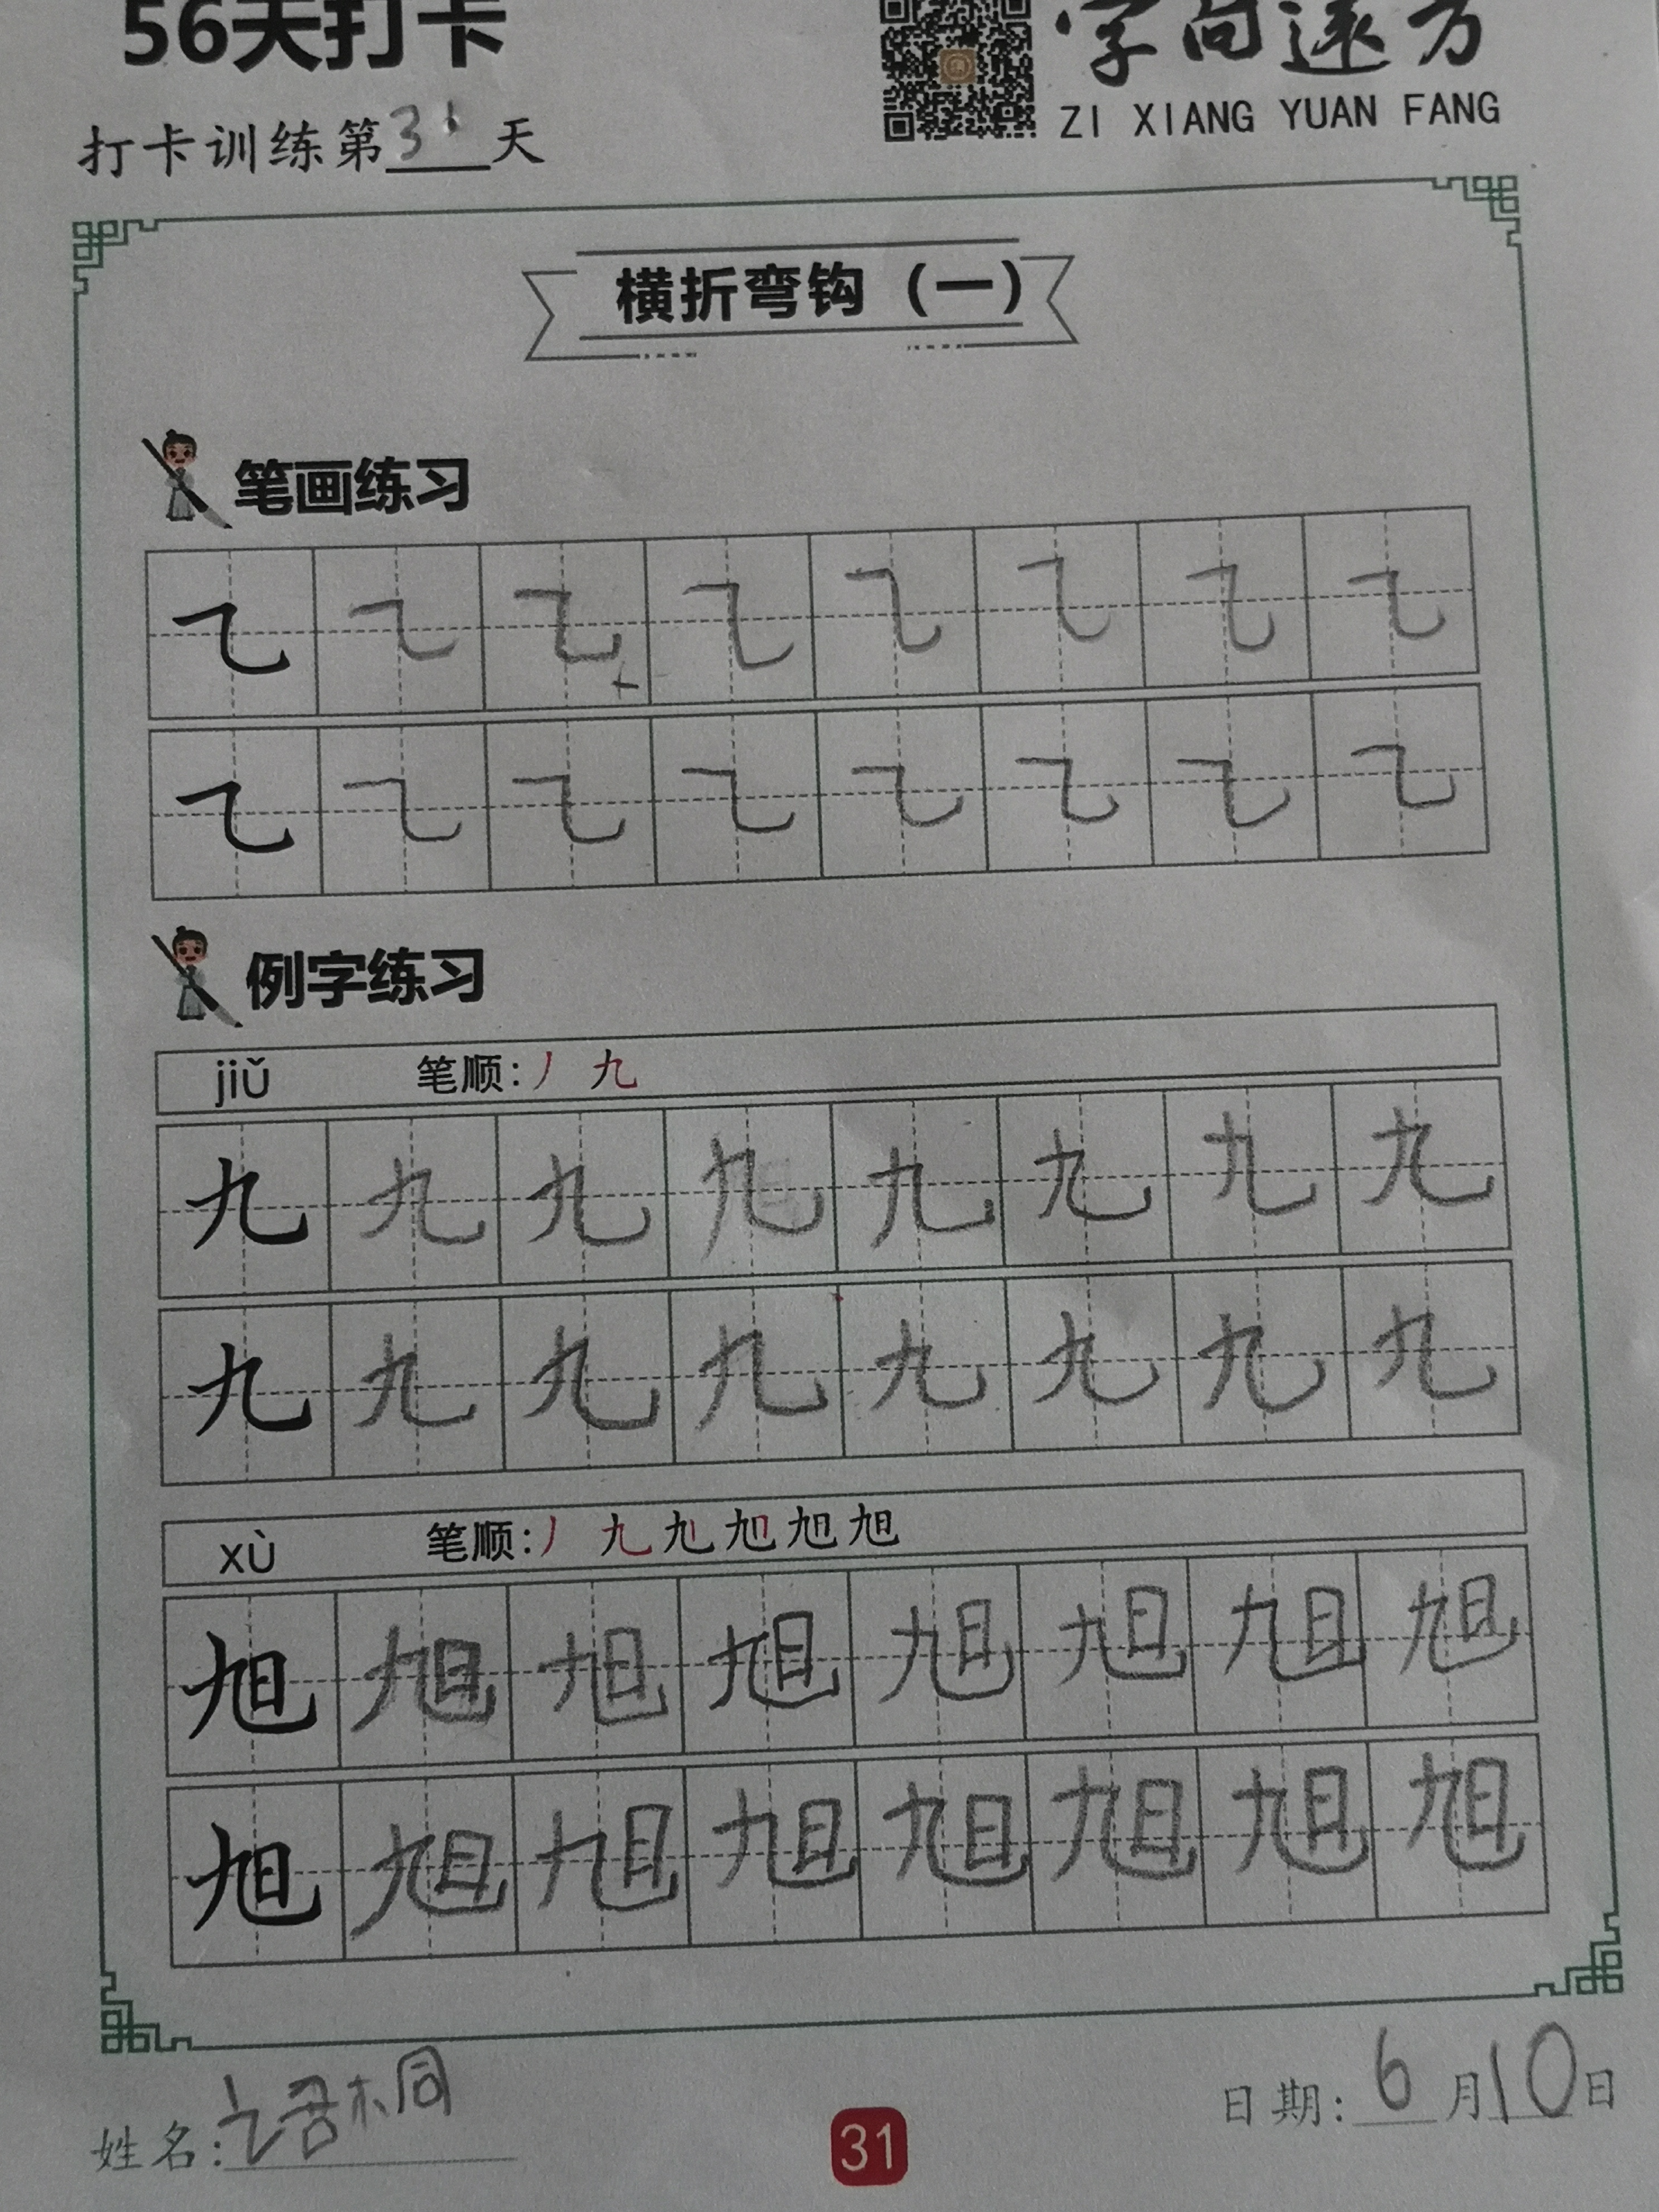 56天打卡
字向远方
ZI XIANG YUAN FANG
打卡训练第31天
横折弯钩（一）
笔画练习
㇈ ㇈ ㇈ ㇈ ㇈ ㇈ ㇈ ㇈
㇈ ㇈ ㇈ ㇈ ㇈ ㇈ ㇈ ㇈
例字练习
jiǔ 笔顺：丿 九
九 九 九 九 九 九 九 九
九 九 九 九 九 九 九 九
xù 笔顺：丿 九 九 旭 旭 旭
旭 旭 旭 旭 旭 旭 旭 旭
旭 旭 旭 旭 旭 旭 旭 旭
姓名： 桐
31
日期：6月10日